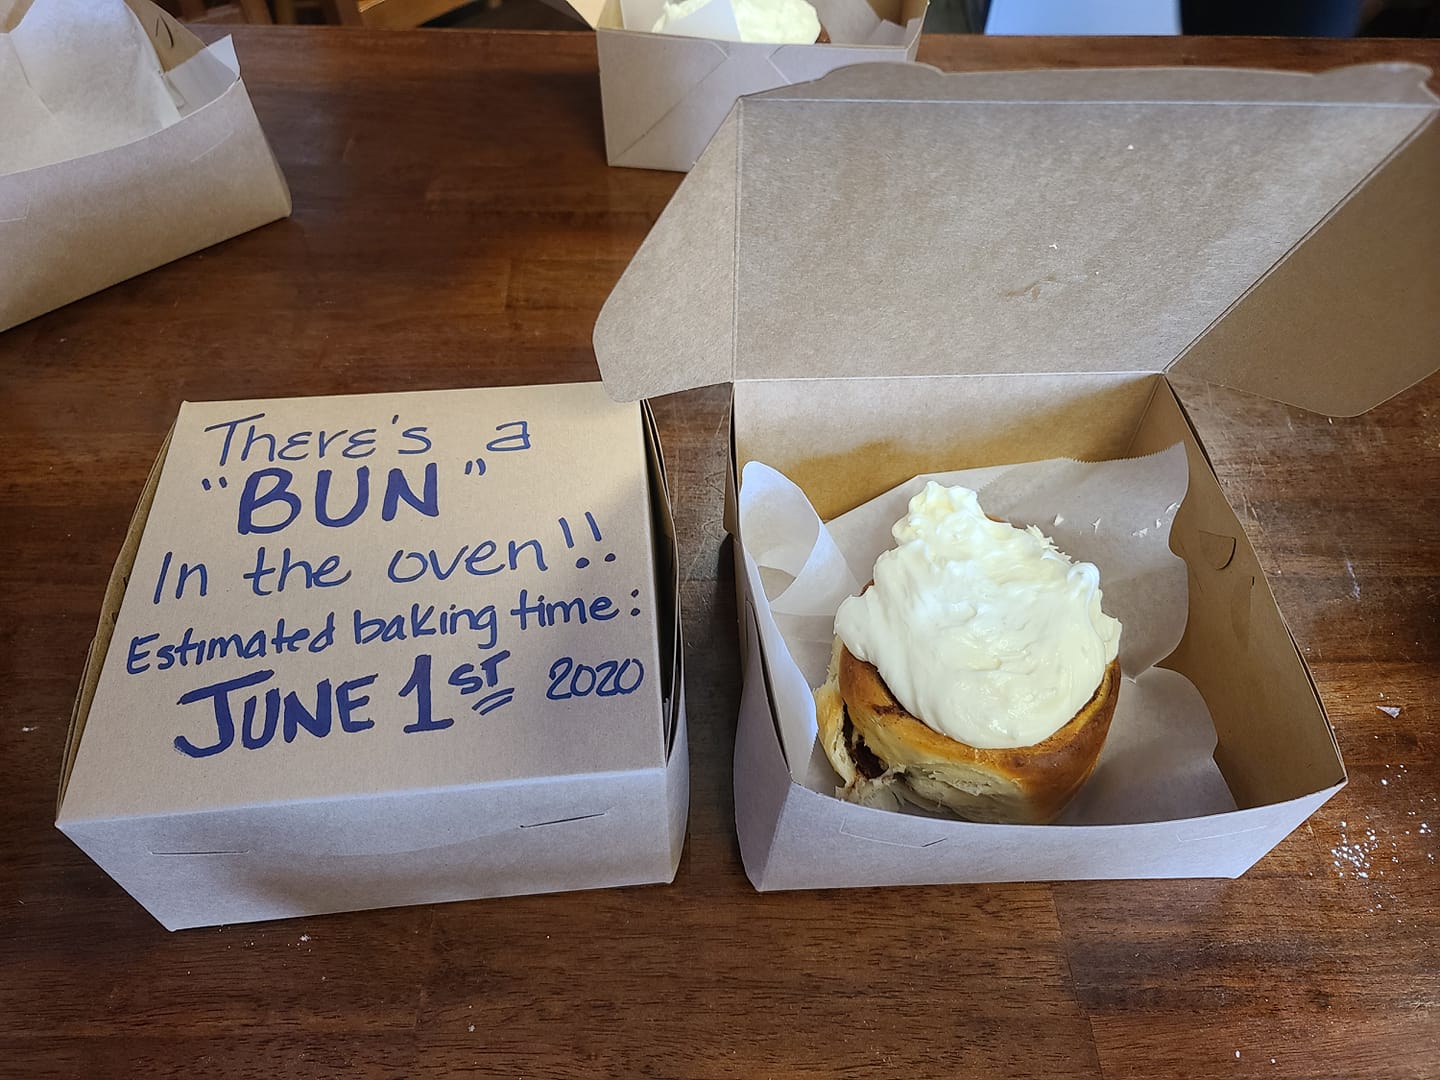 There's a
"BUN"
In the oven!!
Estimated baking time:
JUNE 1ST 2020